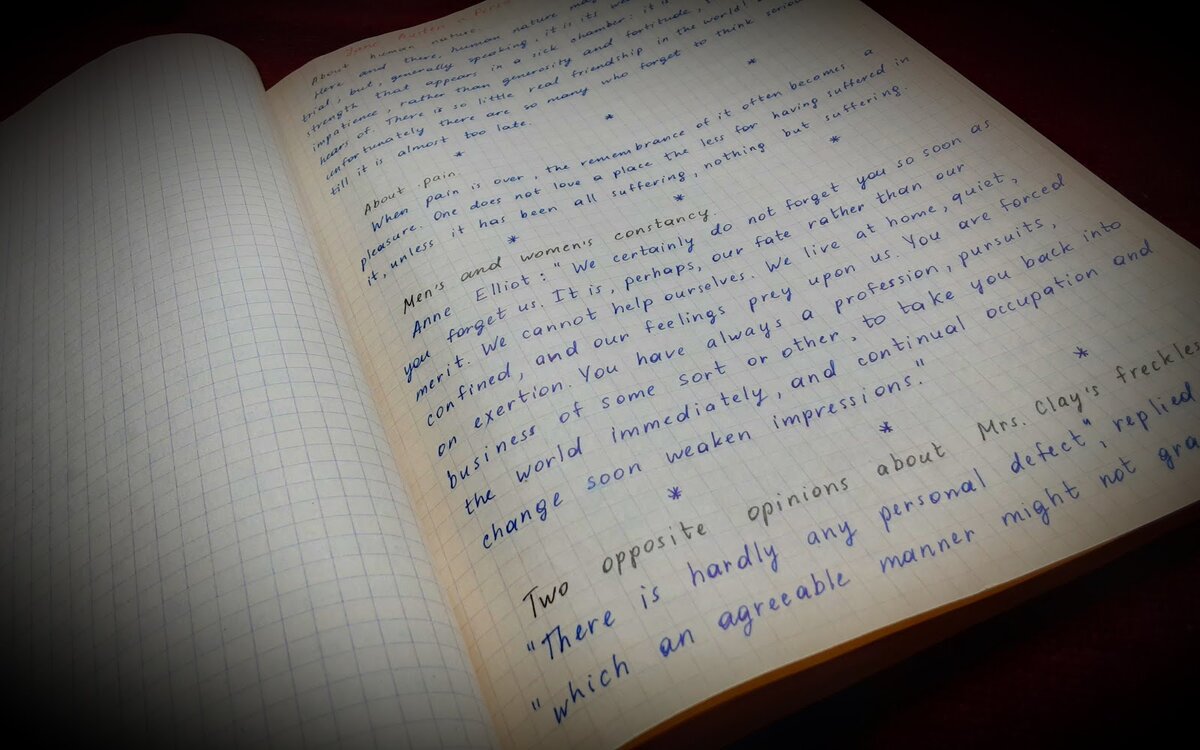 Jane Austen's
About human nature.
Here and there, human nature may
trial, but, generally speaking, it is its
strength that appears in a sick chamber: it is
impatience, rather than generosity and fortitude,
hears of. There is so little real friendship in the world!
unfortunately there are so many who forget to think
till it is almost too late.
* * *
About pain.
When pain is over, the remembrance of it often becomes a
pleasure. One does not love a place the less for having suffered in
it, unless it has been all suffering, nothing but suffering.
* * *
Men's and women's constancy.
Anne Elliot: "We certainly do not forget you so soon as
you forget us. It is, perhaps, our fate rather than our
merit. We cannot help ourselves. We live at home, quiet,
confined, and our feelings prey upon us. You are forced
on exertion. You have always a profession, pursuits,
business of some sort or other, to take you back into
the world immediately, and continual occupation and
change soon weaken impressions."
* * *
Two opposite opinions about Mrs. Clay's freckles
"There is hardly any personal defect", replied
"which an agreeable manner might not gra